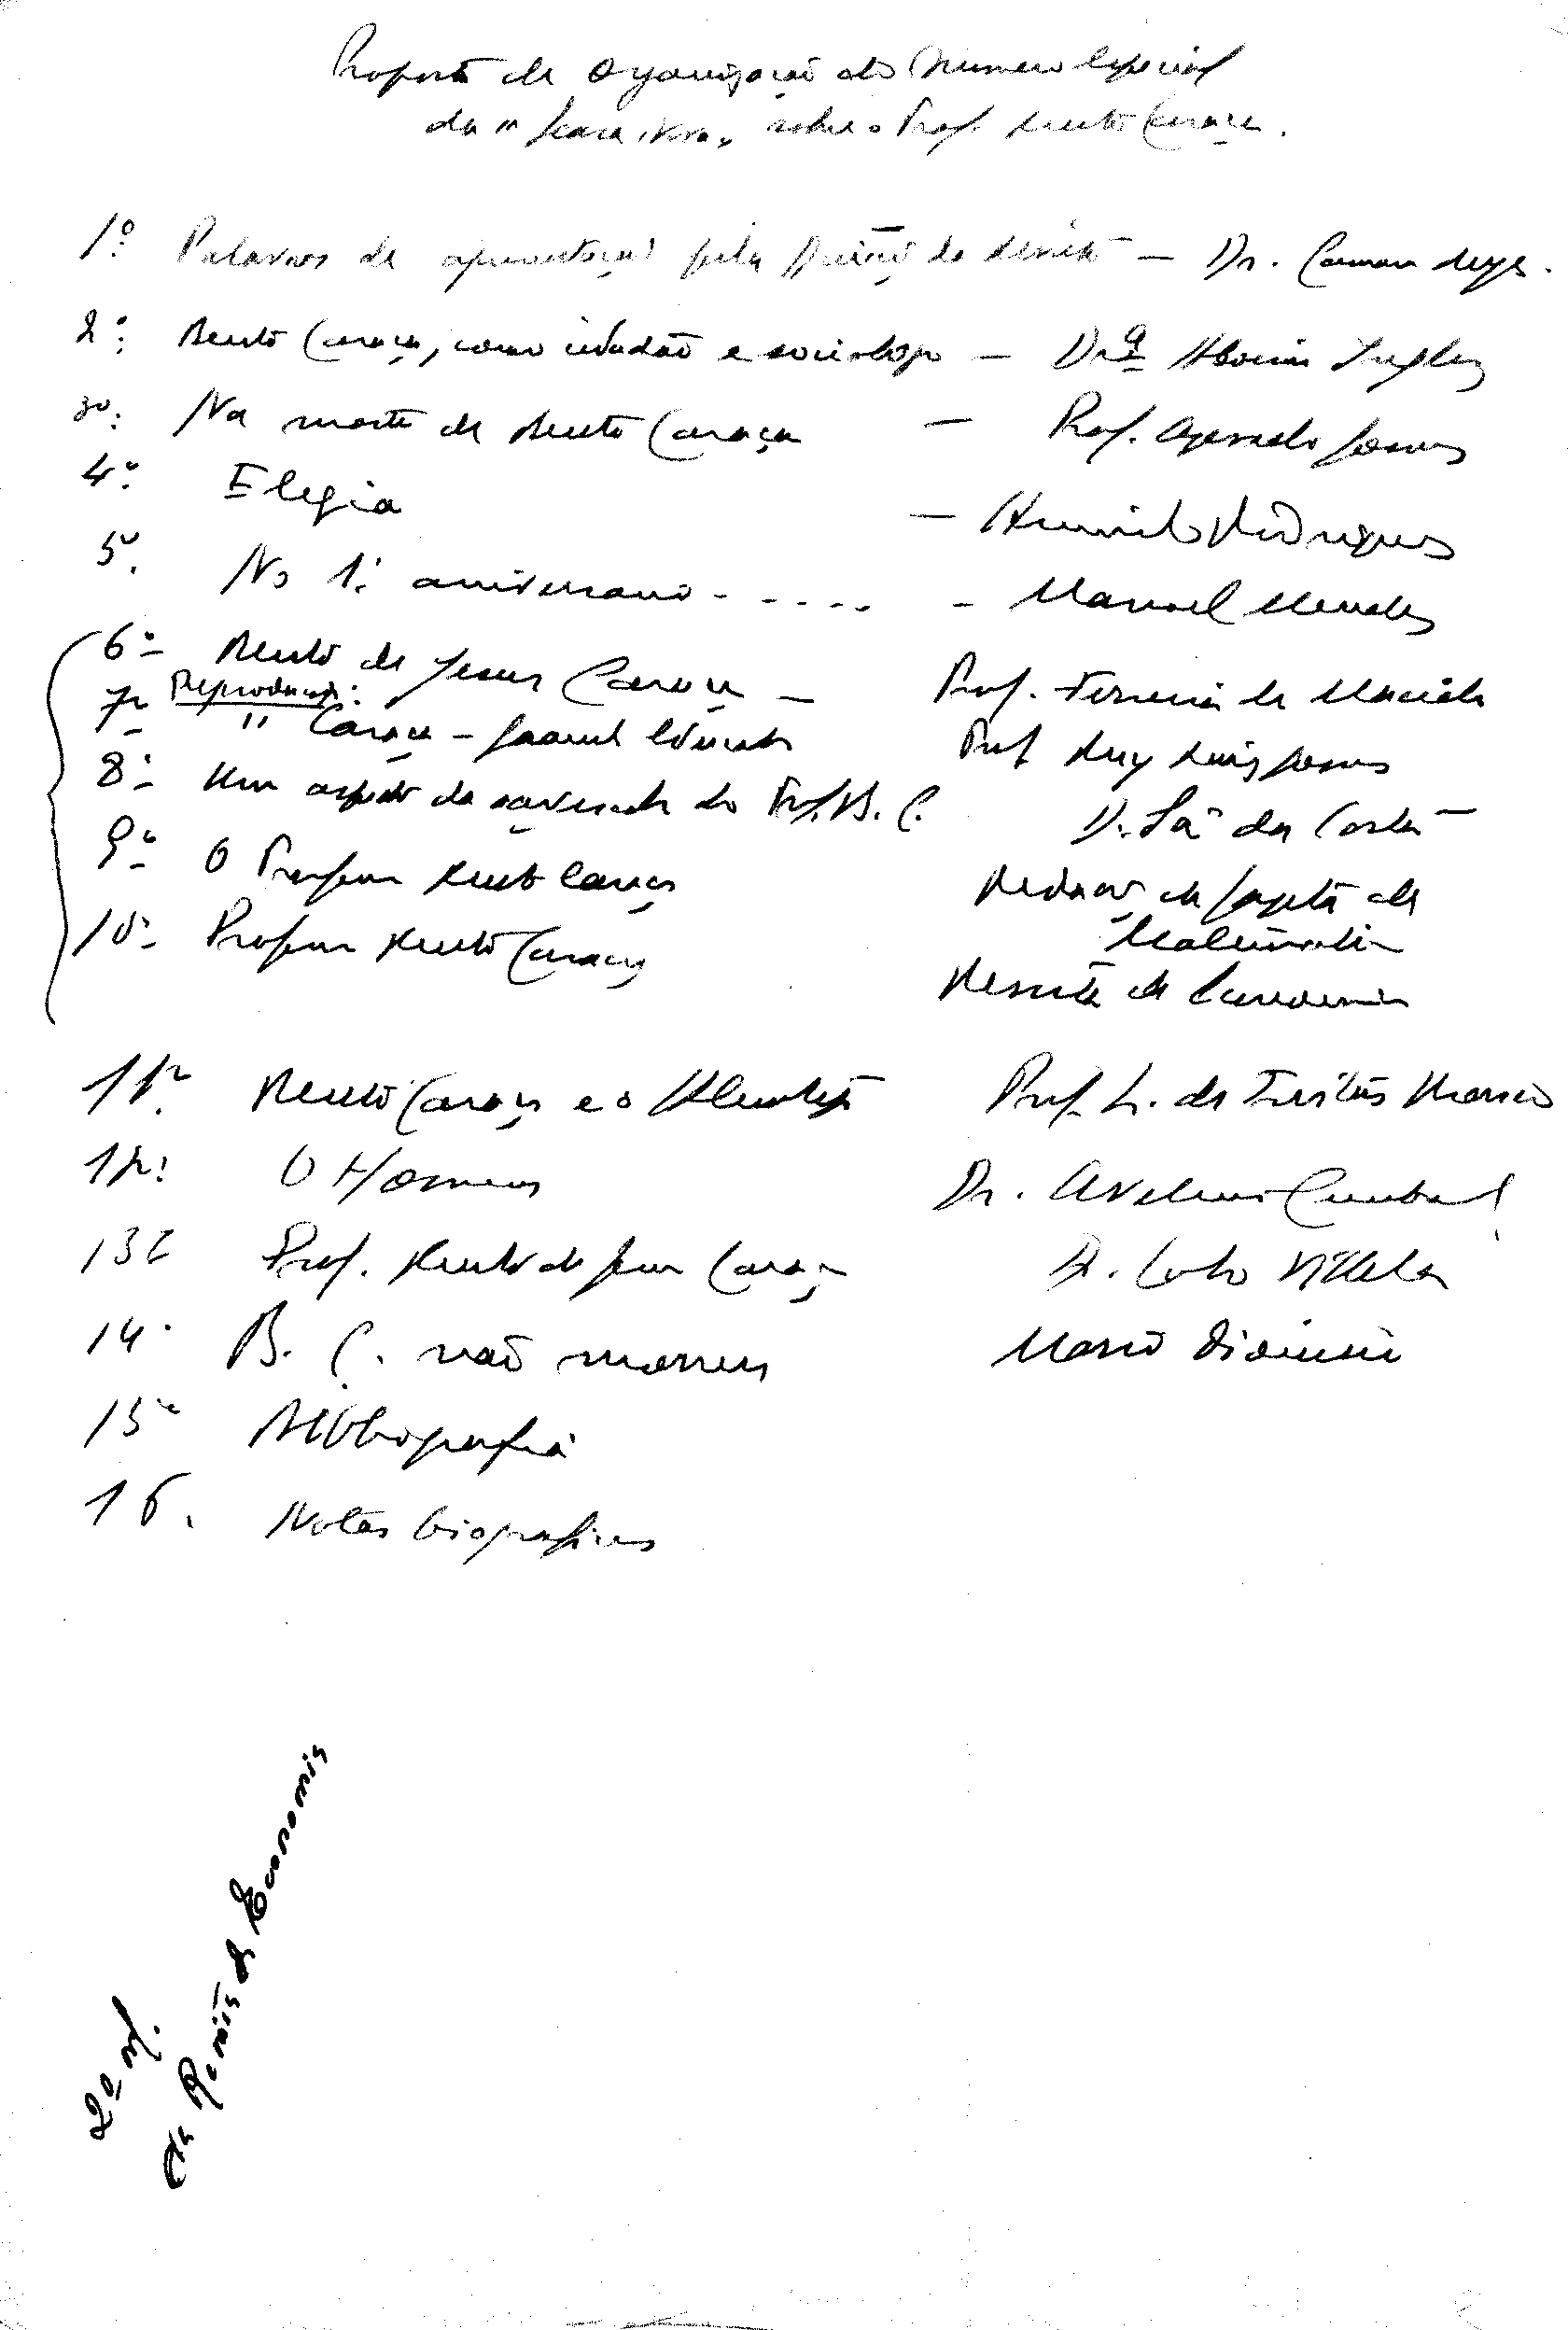 Proposta de organização do Numero Especial
da "Seara Nova" sobre o Prof. Bento Caraça.
1º. Palavras de apresentação pela Direcção da Revista — Dr. Camara Reys.
2º. Bento Caraça, como cidadão e sociologo — Drª
3º. Na morte de Bento Caraça — Prof. Azevedo Gomes
4º. Elegia — Rodrigues
5º. No 1º. aniversario - . . . . - Manuel Mendes
6º- Bento de Jesus Caraça — Prof. Ferreira de Macedo
Reprodução:
7º- " Caraça - Grande Educador Prof Ruy Luis Gomes
8º- Um aspecto da do Prof. B. C. Dr. Sá da Costa
9º- O Professor Bento Caraça Redacção da Gazeta de
Matematica
10º- Professor Bento Caraça Revista de Economia
11º. Bento Caraça e o Prof. L. de
12º. O Homem Dr. Avelino Cunhal
13º Prof. Bento de Jesus Caraça Dr. Lobo Vilela
14º B. C. não morreu Mario Dionisio
15º Bibliografia
16. Notas biograficas
2º vol.
da Revista de Economia